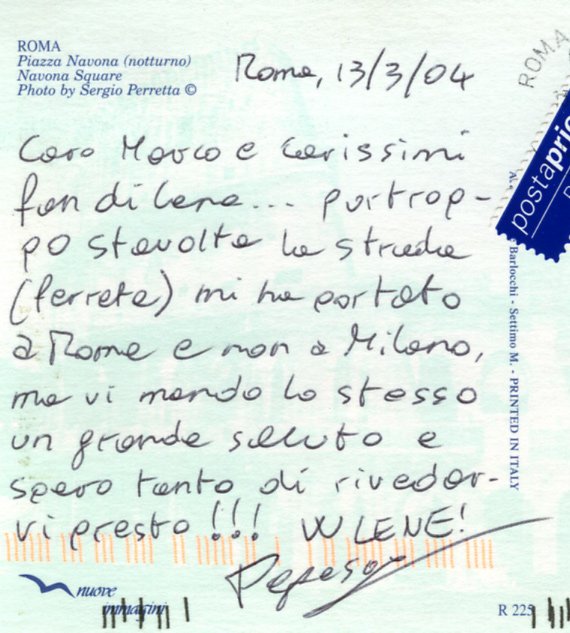 ROMA
Piazza Navona (notturno)
Navona Square
Photo by Sergio Perretta ©
Roma, 13/3/04
ROMA
postaprio
Caro Marco e carissimi
fan di Lene... purtrop-
po stavolta la strada
(ferrata) mi ha portato
a Roma e non a Milano,
ma vi mando lo stesso
un grande saluto e
spero tanto di riveder-
vi presto!!! W LENE!
Barlocchi - Settimo M. - PRINTED IN ITALY
nuove
immagini
R 225